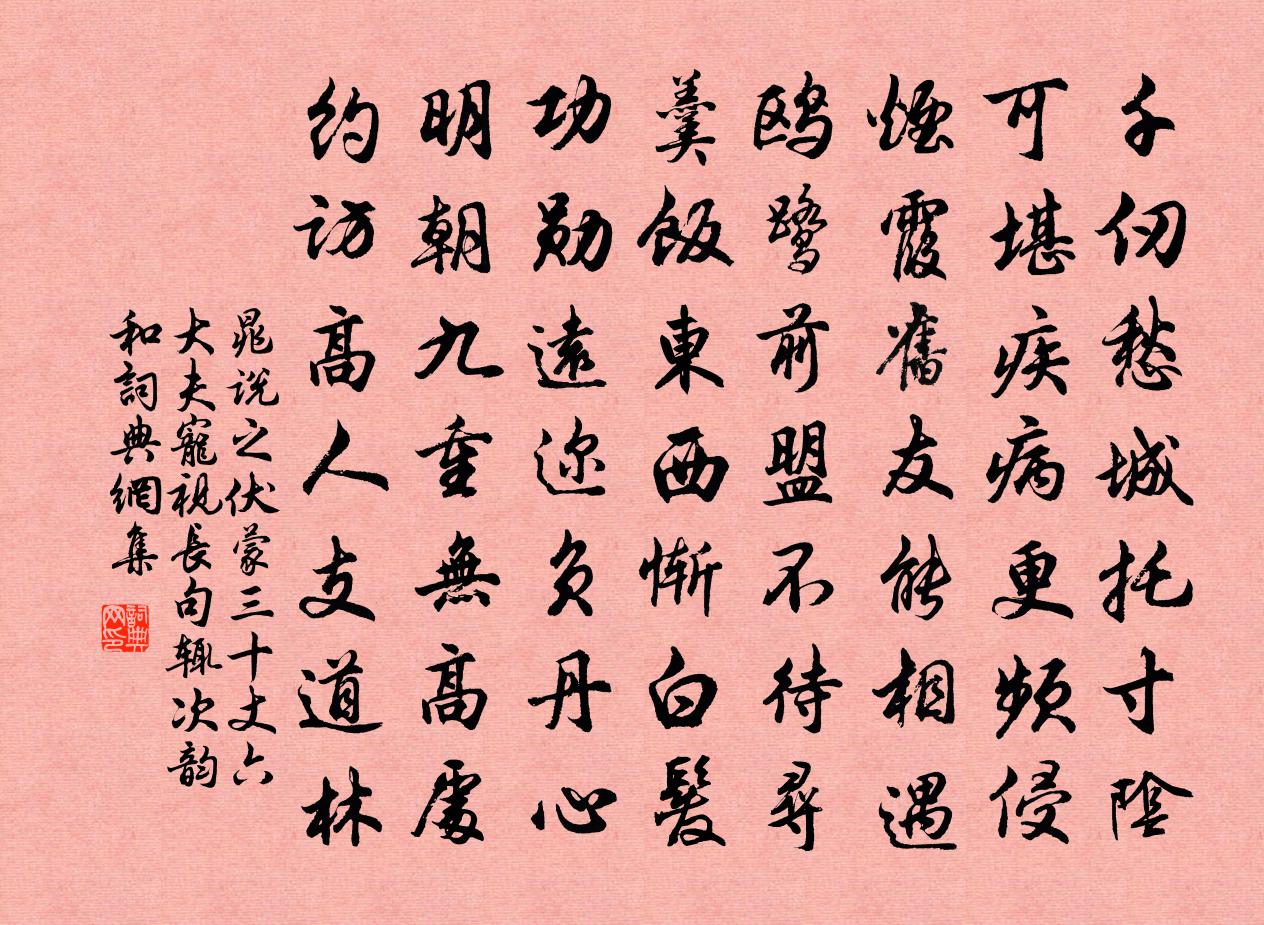 千仞愁城托寸陰
可堪疾病更頻侵
煙霞舊友能相遇
鷗鷺前盟不待尋
羹飯東西慚白髮
功勛遠邇負丹心
明朝九重無高處
約訪高人支道林
晁說之伏蒙三十丈六
大夫寵視長句輒次韵
和詞典網集
詞典网印